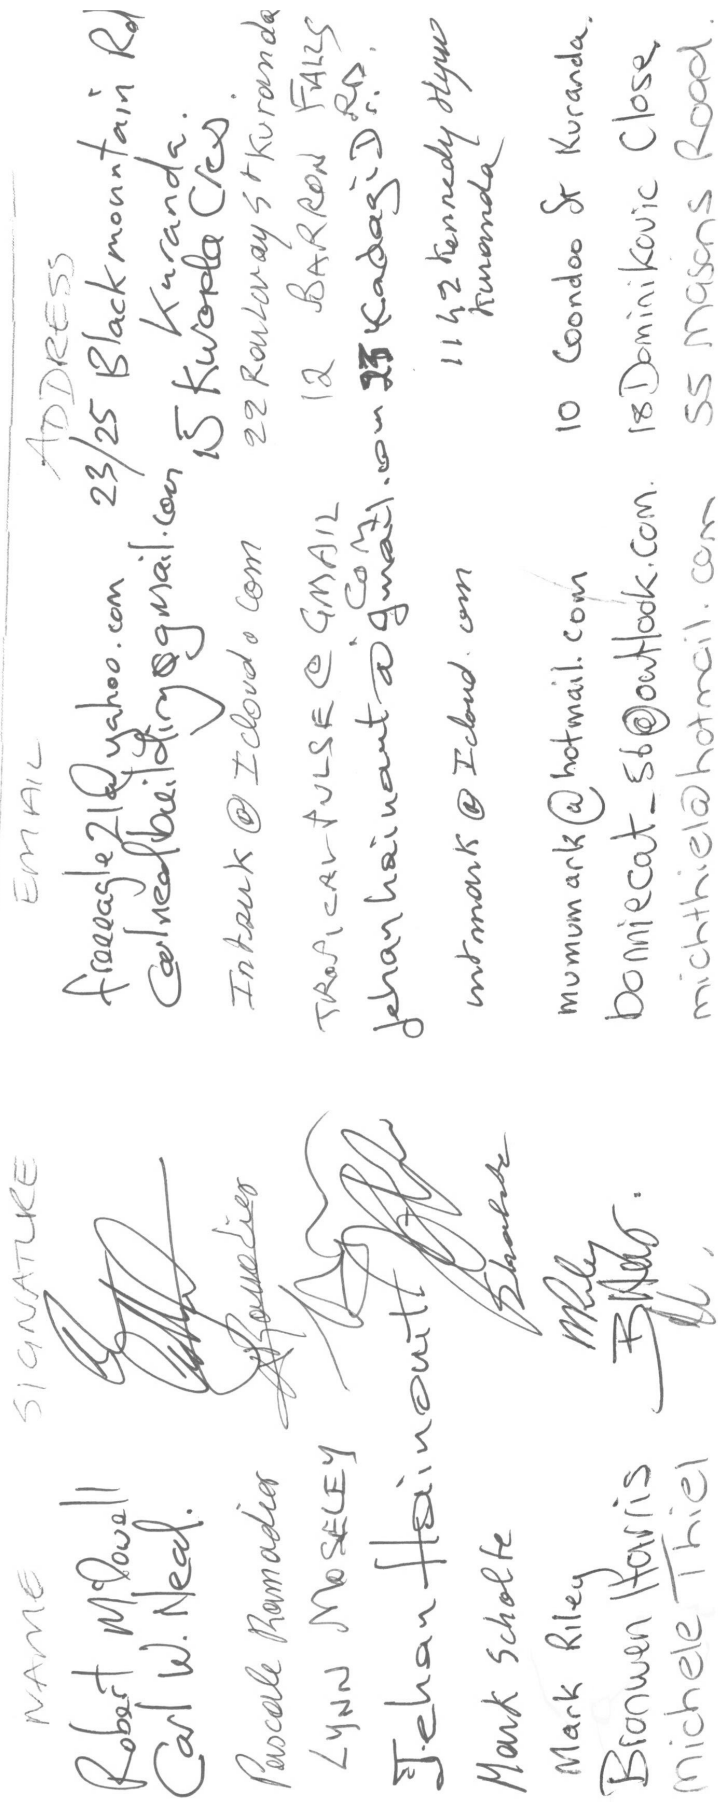 NAME SIGNATURE EMAIL ADDRESS
Robert McDowell freeeagle21@yahoo.com 23/25 Blackmountain Rd Kuranda.
Carl W. Neal. carlnealbuilding@gmail.com 15 Kworda Cres.
Pascale Ramadier Ramadier @Icloud.com 22 St Kuranda
LYNN MOSELEY TROPICALPULSE@GMAIL COM 12 BARRON FALLS RD.
Jehan Hainaut jehanhainaut@gmail.com Kadagi Dr.
Mark Scholte Scholte mtmark@Icloud.com 1142 Kennedy Hyw Kuranda
Mark Riley MRiley mumumark@hotmail.com 10 Coondoo St Kuranda.
Bronwen Harris bonniecat_56@outlook.com. 18 Dominikovic Close
Michele Thiel michthiel@hotmail.com 55 Masons Road.